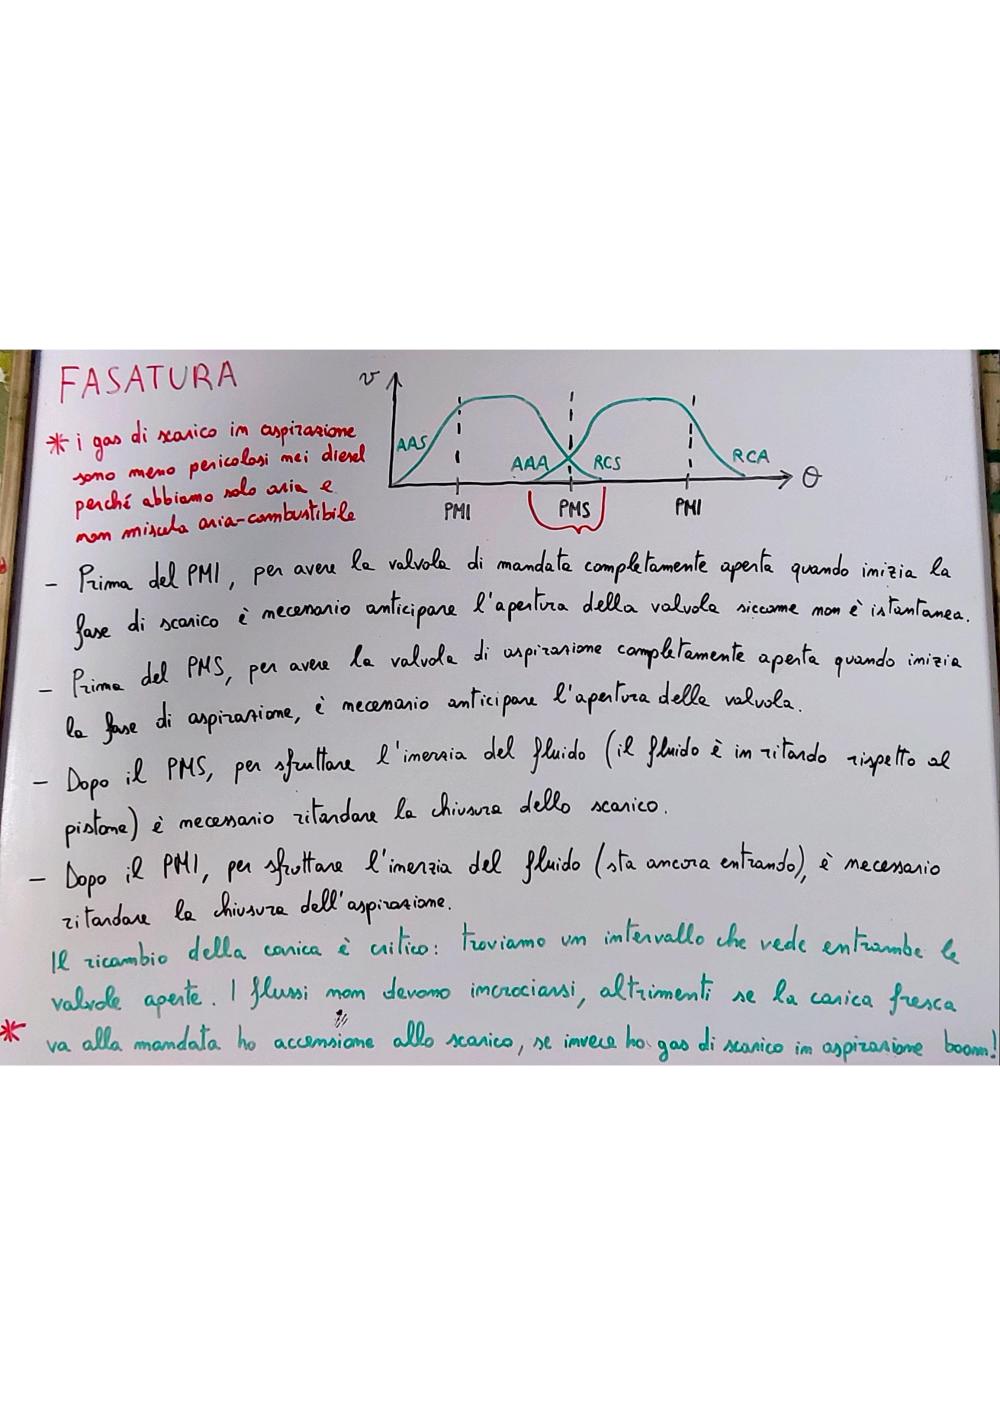 FASATURA
* i gas di scarico in aspirazione
sono meno pericolosi nei diesel
perché abbiamo solo aria e
non miscela aria-combustibile
v
AAS
AAA
RCS
RCA
θ
PMI
PMS
PMI
- Prima del PMI, per avere la valvola di mandata completamente aperta quando inizia la
fase di scarico è necessario anticipare l'apertura della valvola siccome non è istantanea.
- Prima del PMS, per avere la valvola di aspirazione completamente aperta quando inizia
la fase di aspirazione, è necessario anticipare l'apertura della valvola.
- Dopo il PMS, per sfruttare l'inerzia del fluido (il fluido è in ritardo rispetto al
pistone) è necessario ritardare la chiusura dello scarico.
- Dopo il PMI, per sfruttare l'inerzia del fluido (sta ancora entrando), è necessario
ritardare la chiusura dell'aspirazione.
Il ricambio della carica è critico: troviamo un intervallo che vede entrambe le
valvole aperte. I flussi non devono incrociarsi, altrimenti se la carica fresca
* va alla mandata ho accensione allo scarico, se invece ho gas di scarico in aspirazione boom!